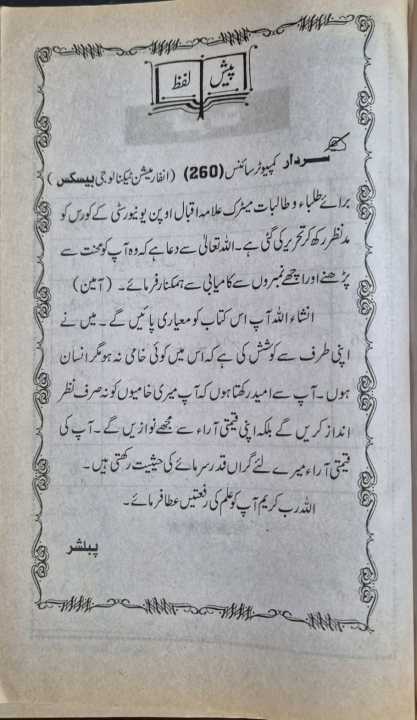 پیش لفظ
سردار کمپیوٹر سائنس (260) (انفارمیشن ٹیکنالوجی بیسکس)
برائے طلباء و طالبات میٹرک علامہ اقبال اوپن یونیورسٹی کے کورس کو
مدنظر رکھ کر تحریر کی گئی ہے۔ اللہ تعالیٰ سے دعا ہے کہ وہ آپ کو محنت سے
پڑھنے اور اچھے نمبروں سے کامیابی سے ہمکنار فرمائے۔ (آمین)
انشاء اللہ آپ اس کتاب کو معیاری پائیں گے۔ میں نے
اپنی طرف سے کوشش کی ہے کہ اس میں کوئی خامی نہ ہو مگر انسان
ہوں۔ آپ سے امید رکھتا ہوں کہ آپ میری خامیوں کو نہ صرف نظر
انداز کریں گے بلکہ اپنی قیمتی آراء سے مجھے نوازیں گے۔ آپ کی
قیمتی آراء میرے لئے گراں قدر سرمائے کی حیثیت رکھتی ہیں۔
اللہ رب کریم آپ کو علم کی رفعتیں عطا فرمائے۔
پبلشر